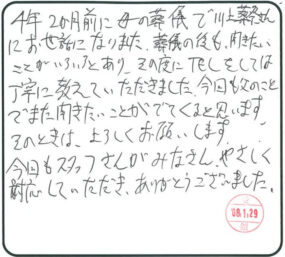 4年2か月前に母の葬儀で川上葬祭さん
にお世話になりまた、葬儀の後も、聞きたい
ことがいろいろとあり、その度にTELをしては
丁寧に教えていただきました。今回も父のこと
でまた聞きたいことがでてくると思います。
そのときは、よろしくお願いします。
今回もスタッフさんがみなさん、やさしく
対応していただき、ありがとうございました。
'09.1.29